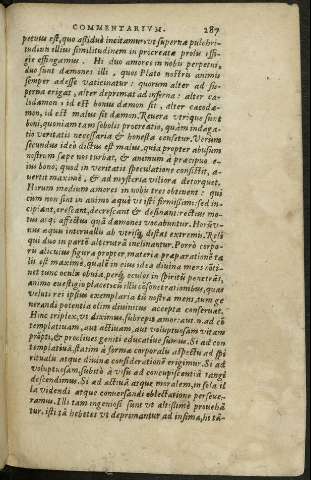 COMMENTARIVM. 287
petuus est, quo assiduè incitamur, vt supernæ pulchri-
tudinis illius similitudinem in procreatæ prolis effi-
gie effingamus. Hi duo amores in nobis perpetui,
duo sunt dæmones illi, quos Plato nostris animis
semper adesse vaticinatur: quorum alter ad su-
perna erigat, alter deprimat ad inferna: alter ca-
lodæmon, id est bonus dæmon sit, alter cacodæ-
mon, id est malus sit dæmon. Reuera vtrique sunt
boni, quoniam tam sobolis procreatio, quàm indaga-
tio veritatis necessaria & honesta censetur. Verùm
secundus ideo dictus est malus, quia propter abusum
nostrum sæpe nos turbat, & animum à præcipuo e-
ius bono, quod in veritatis speculatione consistit, a-
uertit maximè, & ad mysteria viliora detorquet.
Horum medium amores in nobis tres obtinent: qui
cum non sint in animo æquè vt isti firmissimi: sed in-
cipiant, crescant, decrescant & desinant: rectius mo-
tus atq; affectus quã dæmones vocabuntur. Horũ v-
nus æquo interuallo ab vtrisq; distat extremis. Reli
qui duo in partẽ alterutrã inclinantur. Porrò corpo-
ris alicuius figura propter materiæ præparationẽ ta
lis est maximè, qualẽ in eius idea diuina mens cõti-
net tunc oculis obuia, perq; oculos in spiritũ penetrãs,
animo è vestigio placet: cũ illis cõsonet rationibus, quas
veluti rei ipsius exemplaria tũ nostra mens, tum ge
nerandi potentia olim diuinitus accepta conseruat.
Hinc triplex, vt diximus, subrepit amor: aut .n. ad cõ
templatiuam, aut actiuam, aut voluptuosam vitam
prõpti, & procliues geniti educatiue sumus. Si ad con
templatiuã, statim à forma corporalis aspectu ad spi
ritualis atque diuinæ considerationẽ erigimur. Si ad
voluptuosam, subitò à visu ad concupiscentiã tangẽdi
descendimus. Si ad actiuã atque moralem, in sola il
la videndi atque conuersandi oblectatione perseue-
ramus. Illi tam ingeniosi sunt vt altissimè prouehã
tur, isti tã hebetes vt deprimantur ad infima, hi tã-